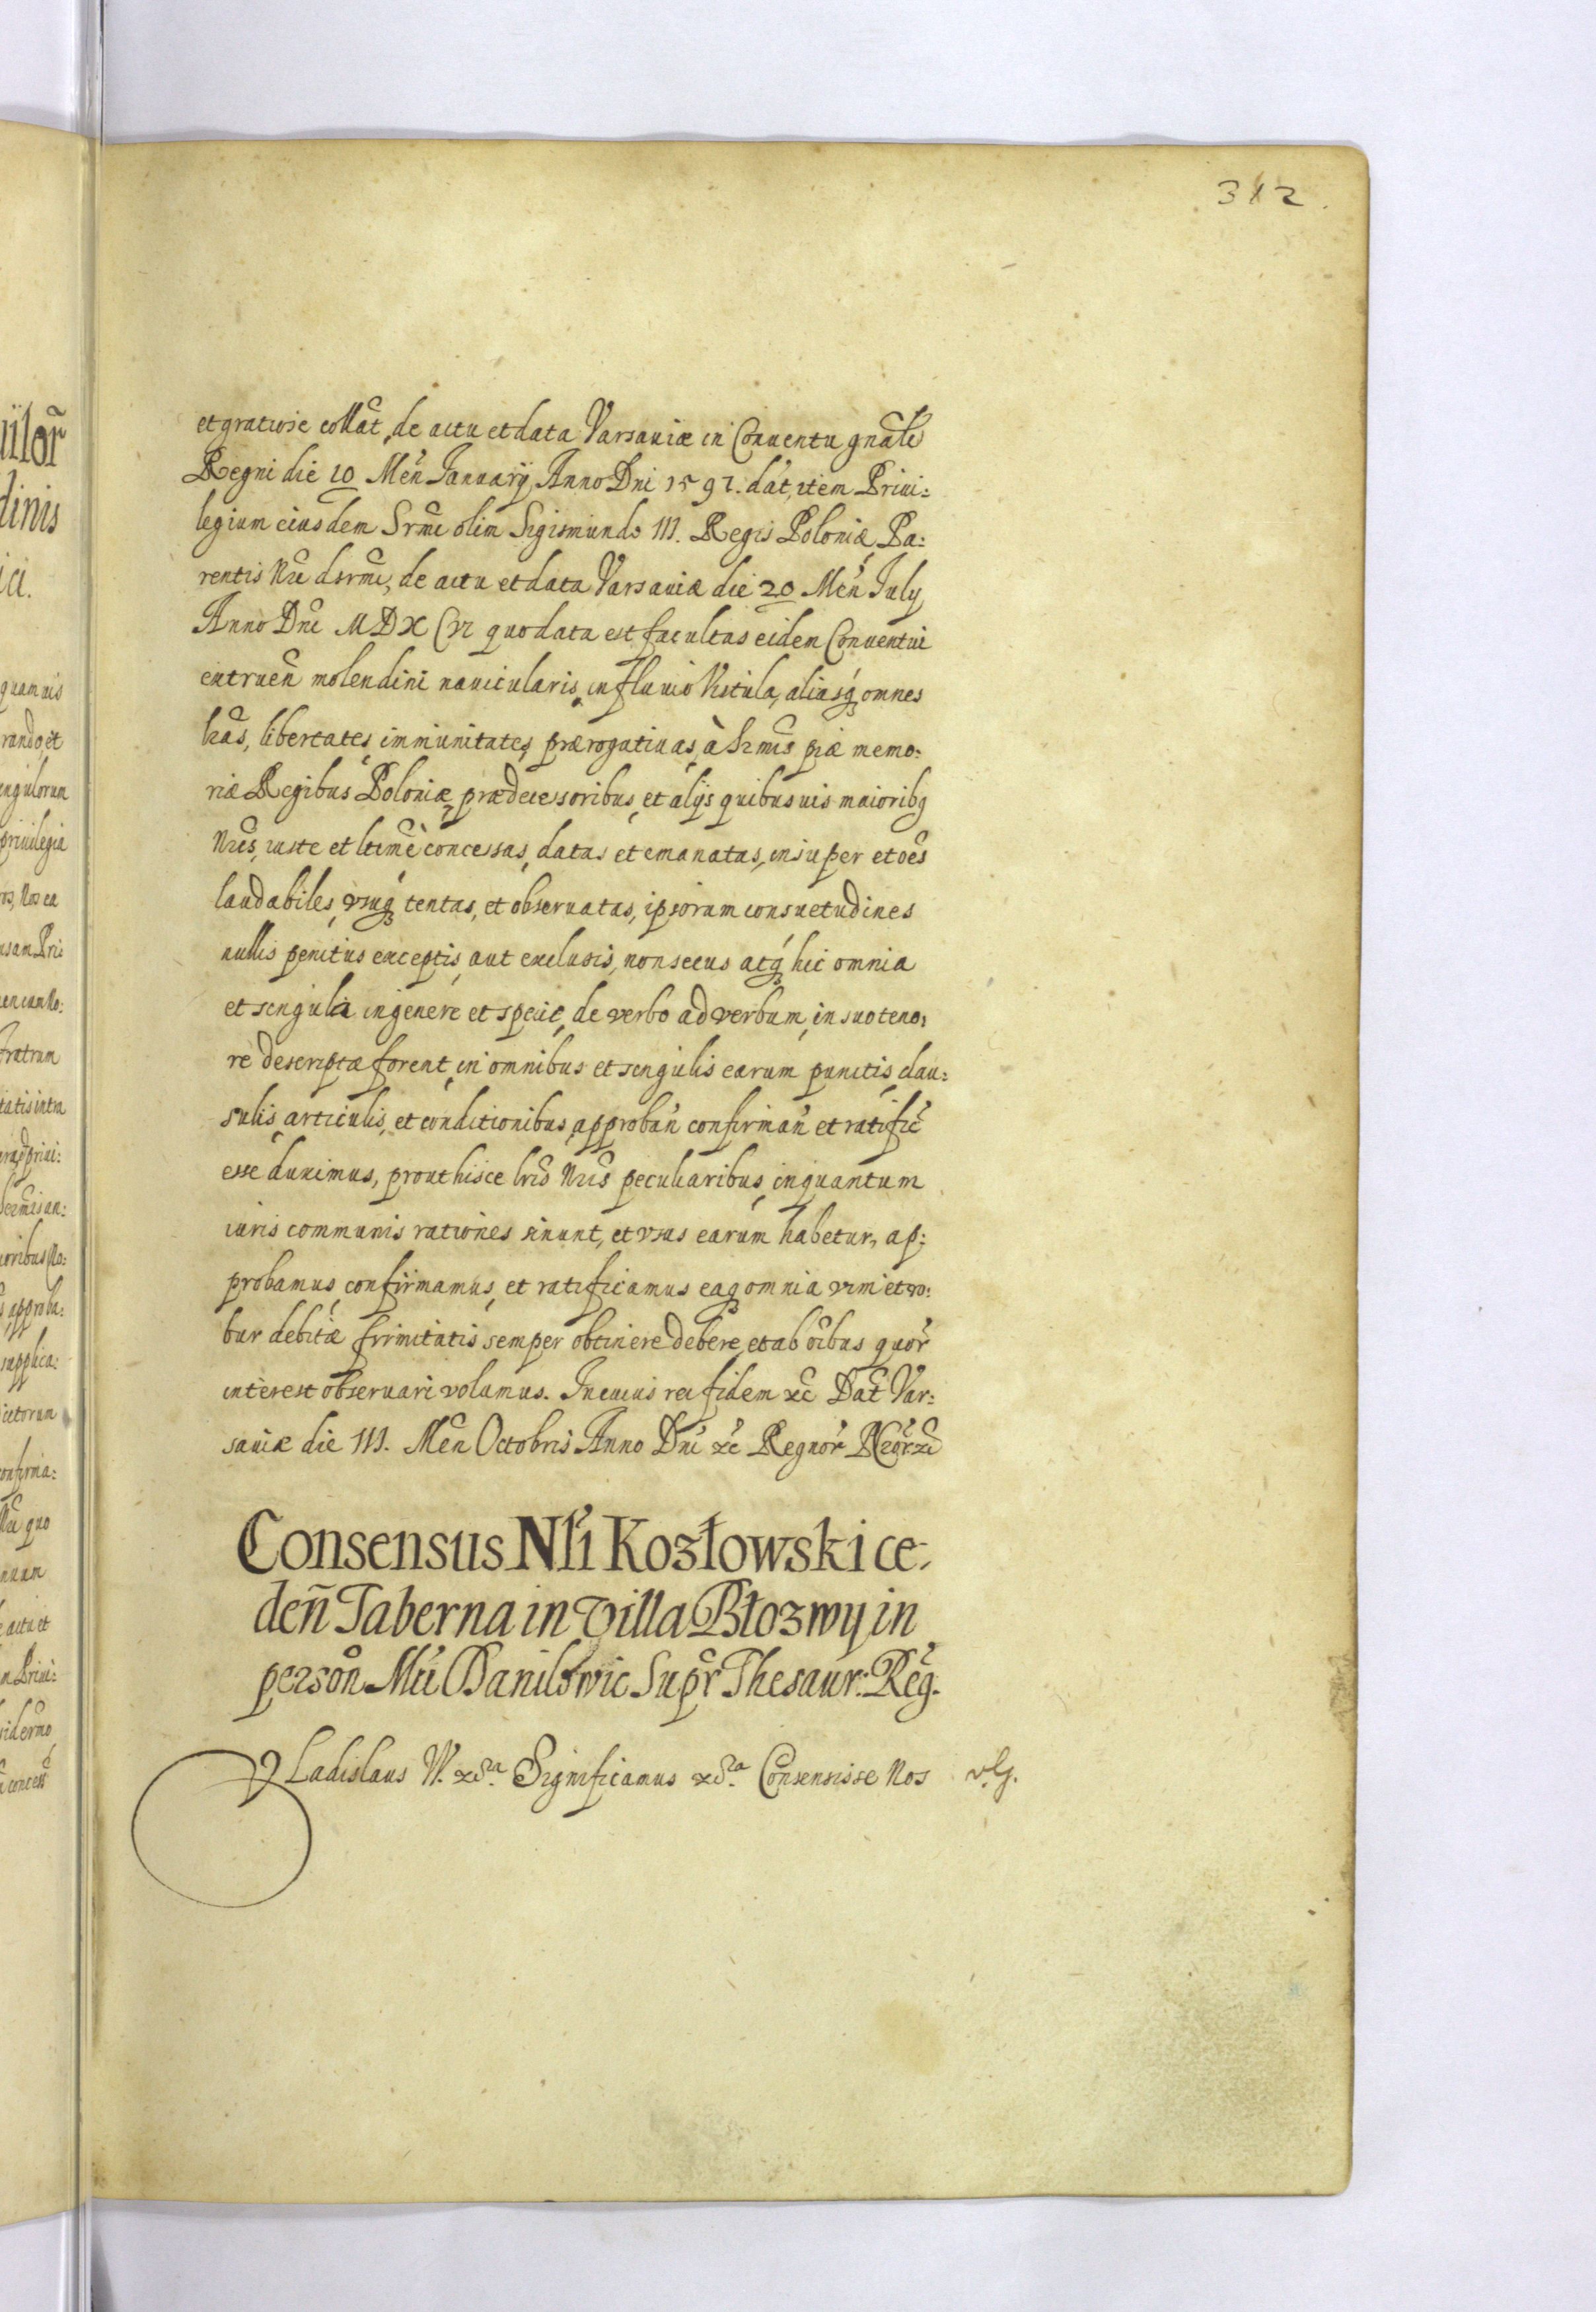 312.
et gratiose collat̃, de actu et data Varsaviæ in Conventu gnãli
Regni die 10 Meñ Ianuarij Anno Dni 1597. dat̃, item Privi:
legium eiusdem Srmi olim Sigismundo III. Regis Poloniæ Pa:
rentis Nri dsrmi, de actu et data Varsaviæ die 20 Meñ Iuly
Anno Dni MDXCVI quo data est facultas eidem Conventui
extrueñ molendini navicularis, in fluvio Vistula, aliasq omnes
lrãs, libertates, immunitates, prærogativas, à Srmis piæ memo:
riæ Regibus Poloniæ, prædecessoribus, et alijs quibusvis maioribq
Nris, iuste et ltimè concessas, datas et emanatas, insuper et oẽs
laudabiles, usuq tentas, et observatas, ipsorum consuetudines
nullis penitus exceptis, aut exclusis, non secus atq hic omnia
et singula in genere et specie, de verbo ad verbum, in suo teno:
re descriptæ forent, in omnibus et singulis earum punctis, clau:
sulis, articulis, et conditionibus, approbañ confirmañ et ratific̃
esse duximus, prout hisce lris Nris peculiaribus, in quantum
iuris communis rationes sinunt, et usus earum habetur, ap:
probamus, confirmamus, et ratificamus eaq omnia vim et ro:
bur debitæ firmitatis semper obtinere debere, et ab oĩbus quor̃
interest observari volumus. In cuius rei fidem xc̃ Dat̃ Var:
saviæ die III. Meñ Octobris Anno Dni xc̃ Regnor̃ Nror̃ xc̃
Consensus Nli Kozłowski ce:
deñ Taberna in Villa Błozwy in
persoñ Mci Daniłowic Supr̃ Thesaur: Reg.
Vladislaus IV. xc̃a. Significamus xc̃a. Consensisse Nos